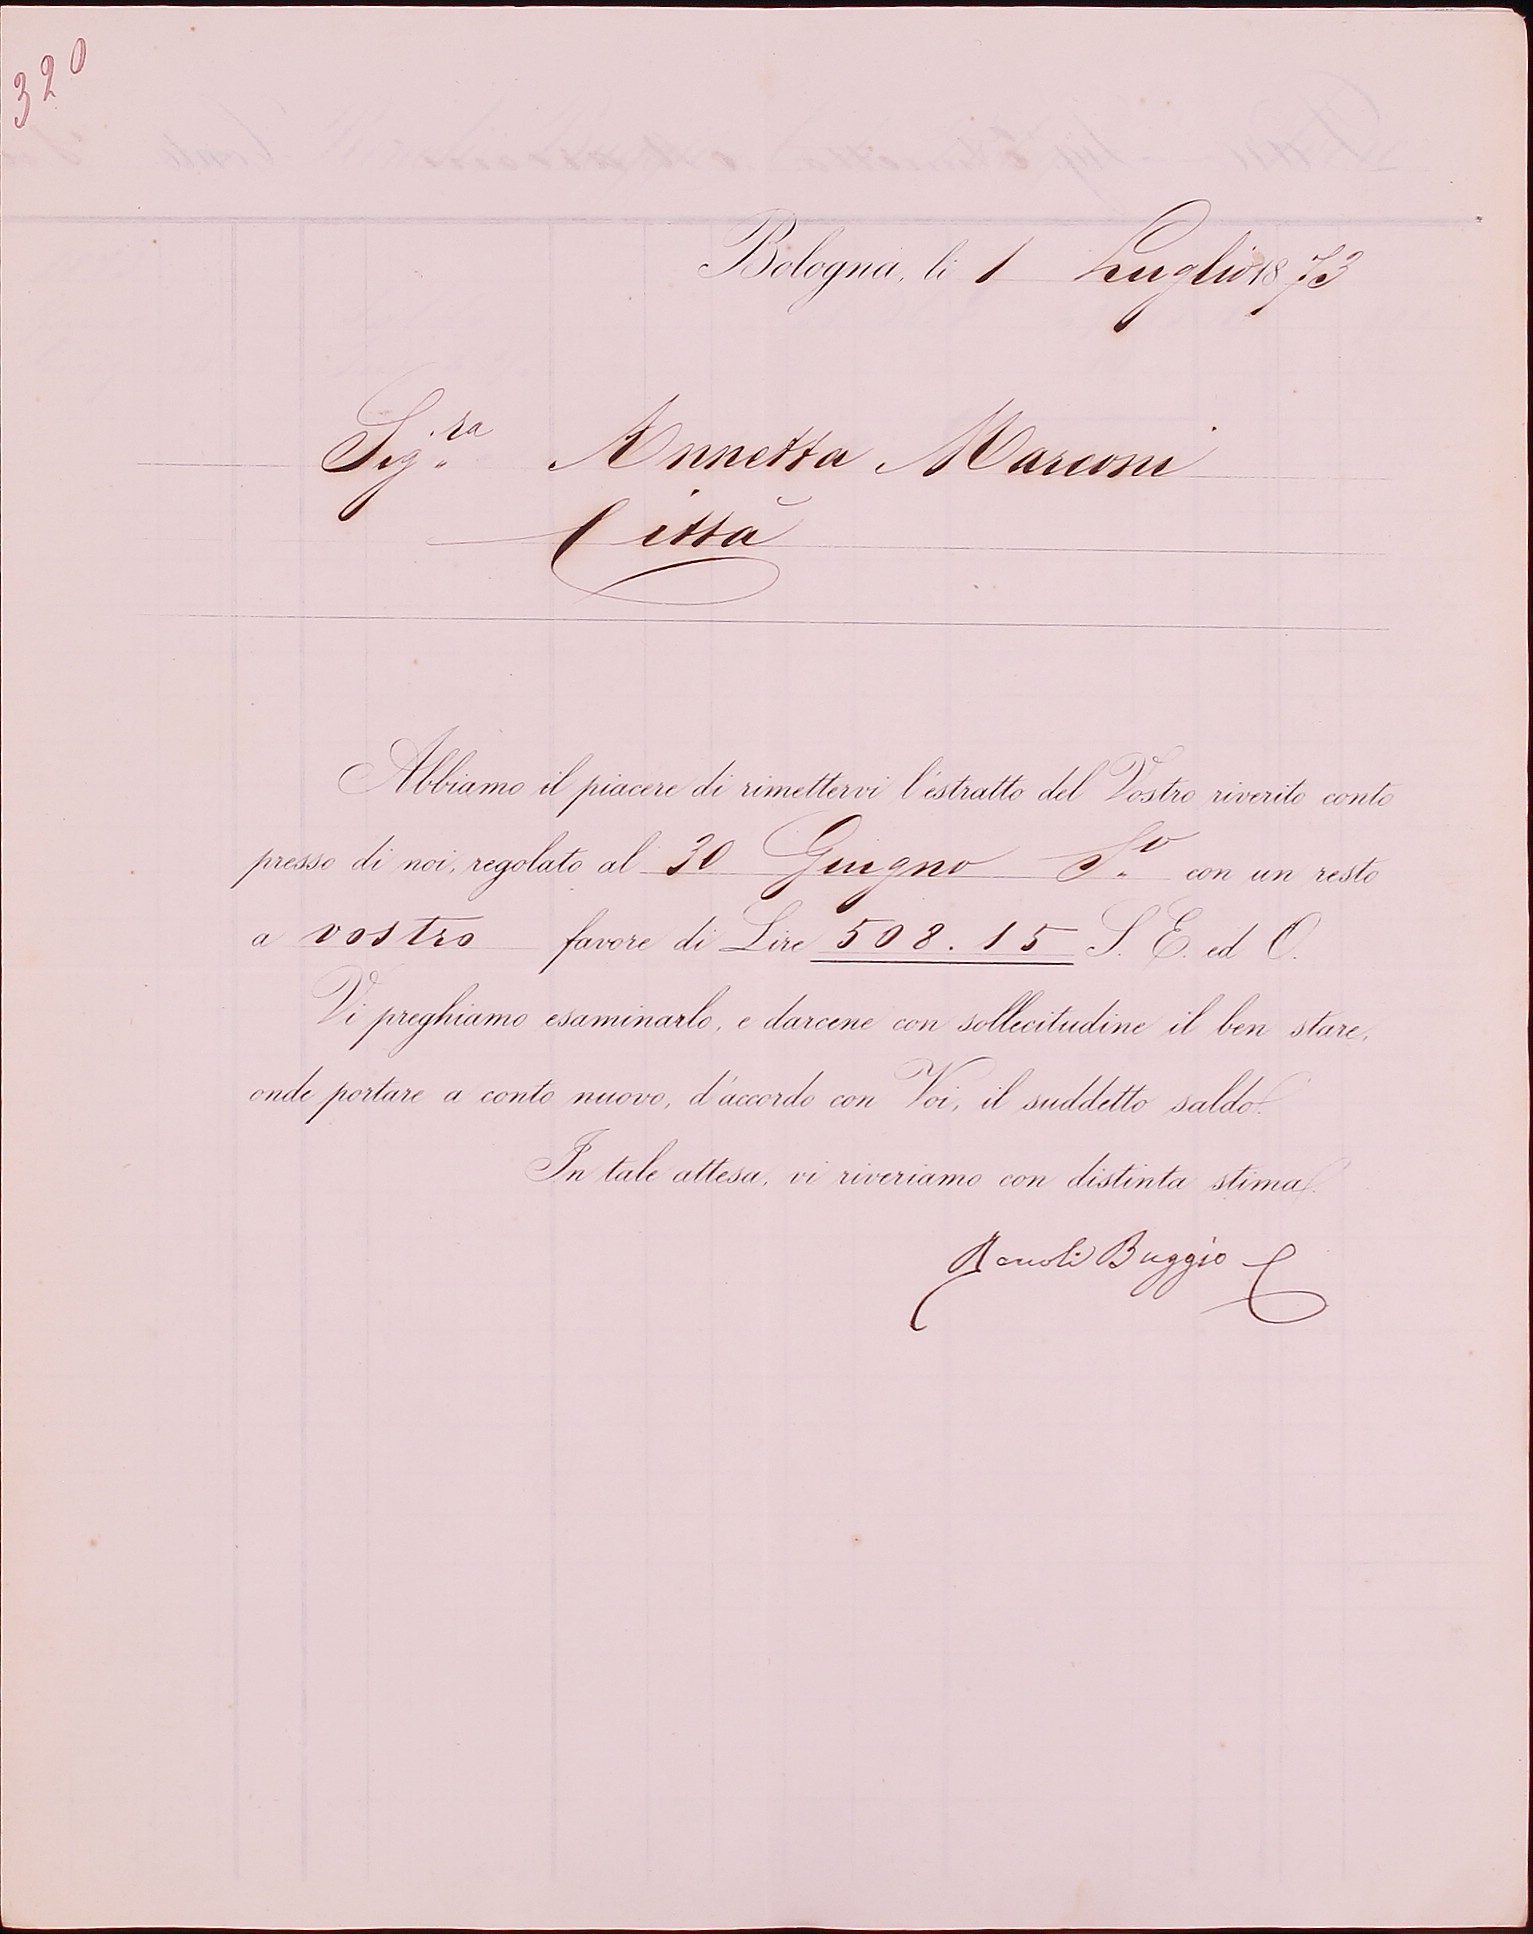 320
Bologna, li 1 Luglio 1873
Sig.ra Annetta Marconi
Città
Abbiamo il piacere di rimettervi l'estratto del Vostro riverito conto
presso di noi, regolato al 30 Giugno S.o con un resto
a vostro favore di Lire 508.15 S. E. ed O.
Vi preghiamo esaminarlo, e darcene con sollecitudine il ben stare,
onde portare a conto nuovo, d'accordo con Voi, il suddetto saldo.
In tale attesa, vi riveriamo con distinta stima.
Renoli Buggio C